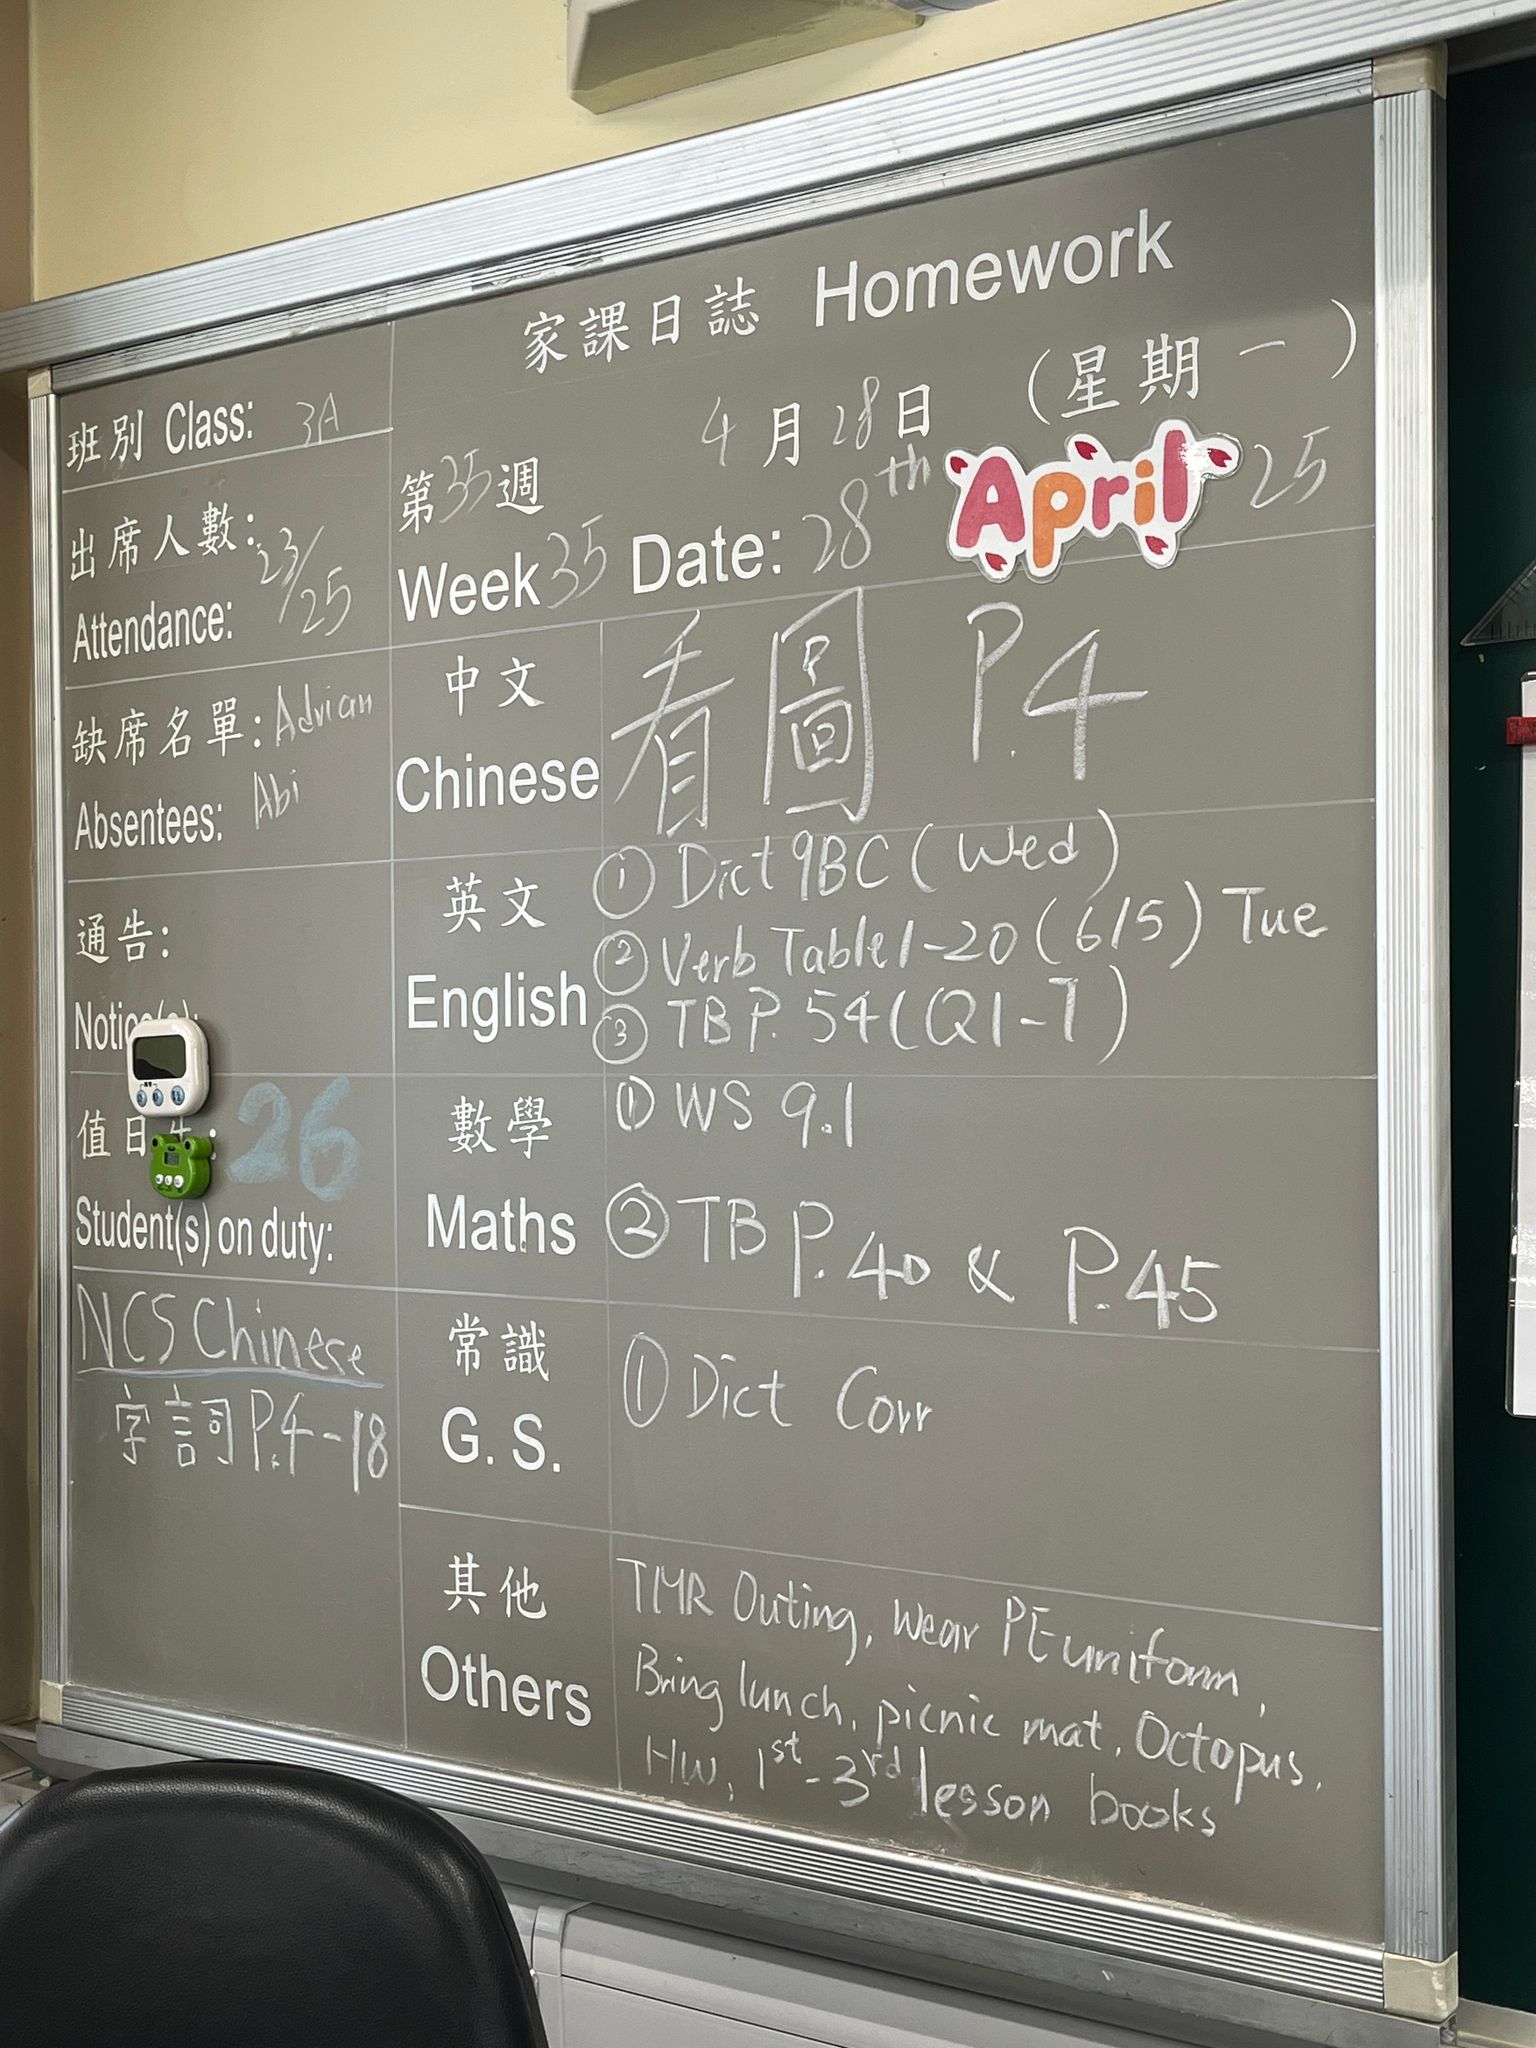 家課日誌 Homework
班別 Class: 3A
出席人數: 23/25
Attendance:
缺席名單: Adrian
Absentees: Abi
通告:
值日生: 26
Student(s) on duty:
NCS Chinese
字詞 P.4-18
4月28日 (星期一)
第35週
Week 35 Date: 28th April 25
中文
Chinese
看圖 P.4
英文
English
① Dict 9BC (Wed)
② Verb Table 1-20 (6/5) Tue
③ TB P. 54 (Q1-7)
數學
Maths
① WS 9.1
② TB P.40 & P.45
常識
G. S.
① Dict Corr
其他
Others
TMR Outing, Wear PE uniform,
Bring lunch, picnic mat, Octopus,
HW, 1st-3rd lesson books